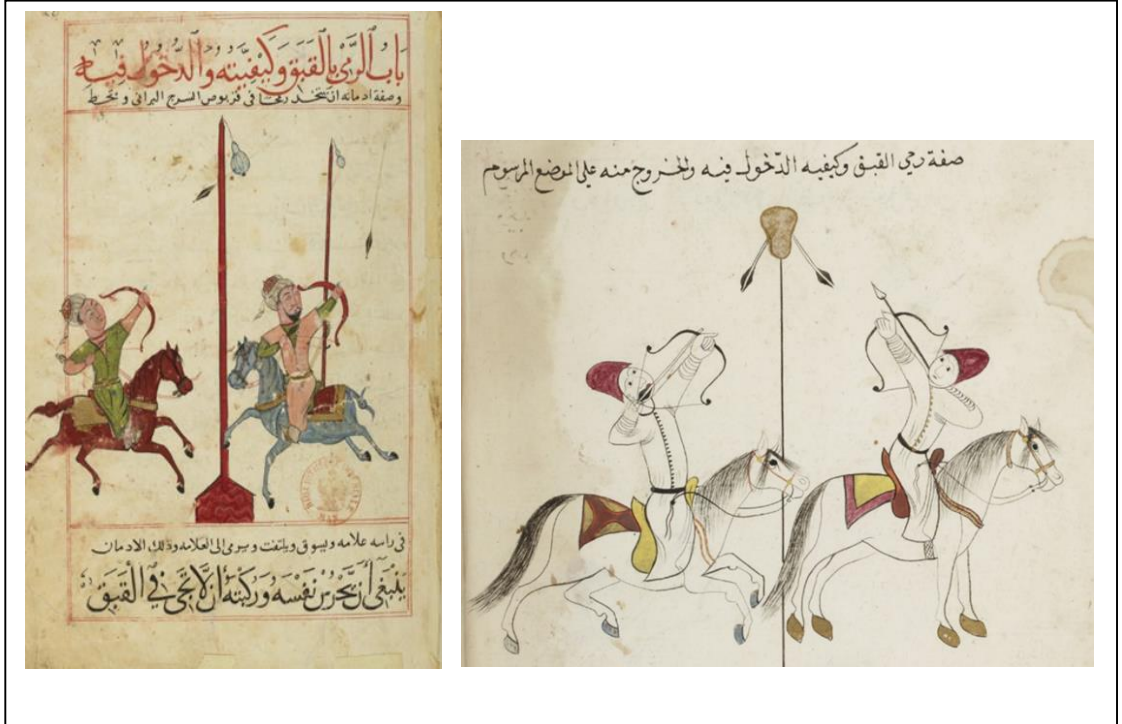 باب الرمي بالقبق وكيفيته والدخول فيه
وصفة ادمانه ان تتخذ رمحا في قربوس السرج البراني وتحط
في راسه علامه ويسوق ويلتفت ويرمي الى العلامه وذلك الادمان
ينبغي أن يحترس نفسه وركبته أن لا تجي في القبق
صفة رمي القبق وكيفيه الدخول فيه والخروج منه على الموضع المرسوم